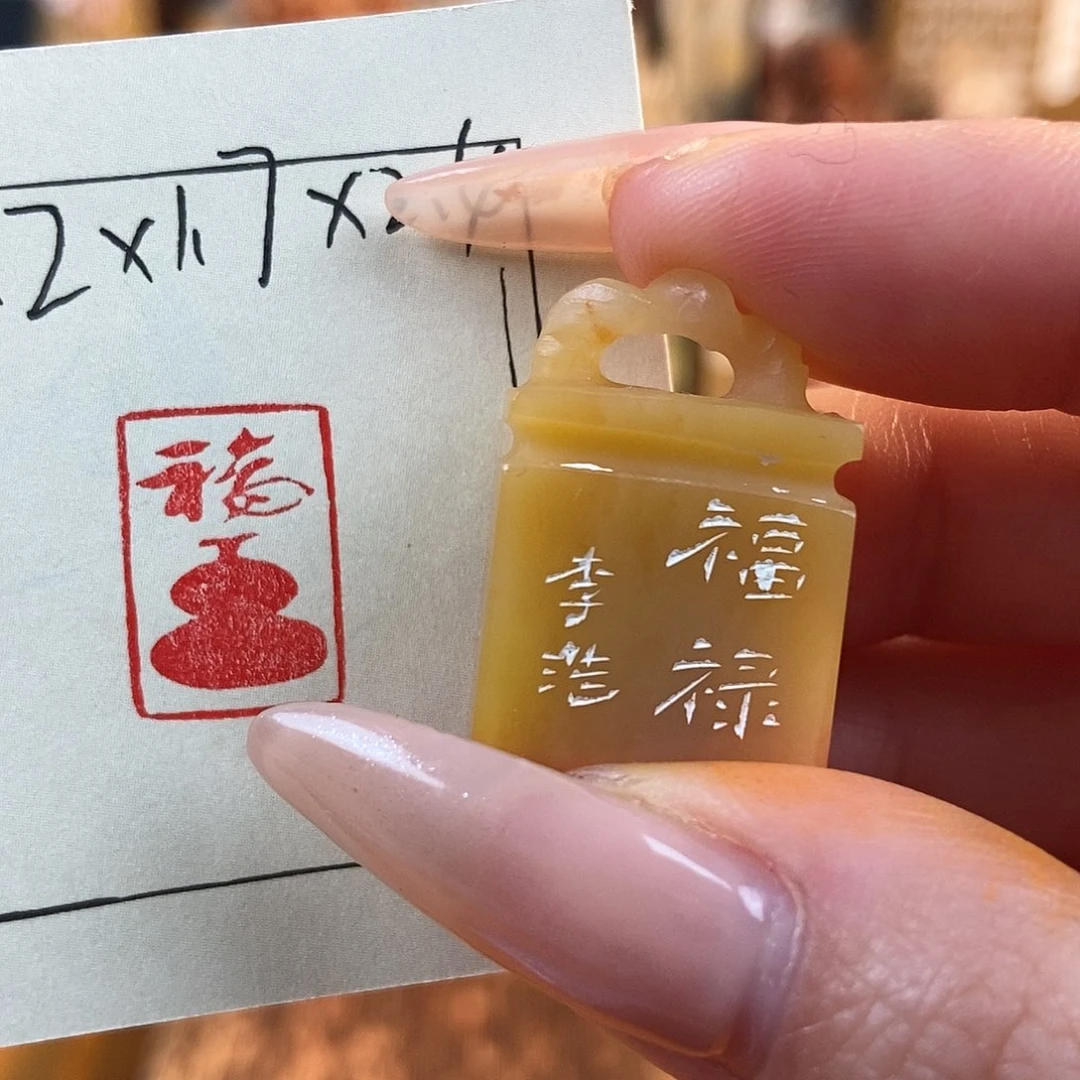 2×1.7×2.
福
福禄
李浩